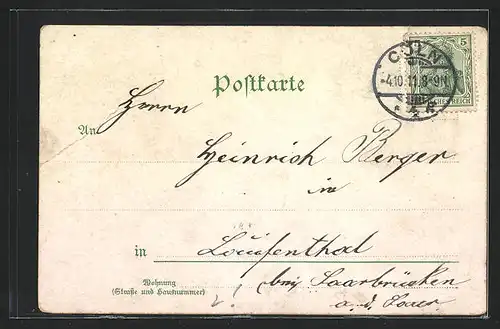 5
CÖLN
-4.10.11.8-9N
Postkarte
Herrn
An
Heinrich Berger
in
in Louisenthal
bei Saarbrücken
a. d. Saar
Wohnung
(Straße und Hausnummer)